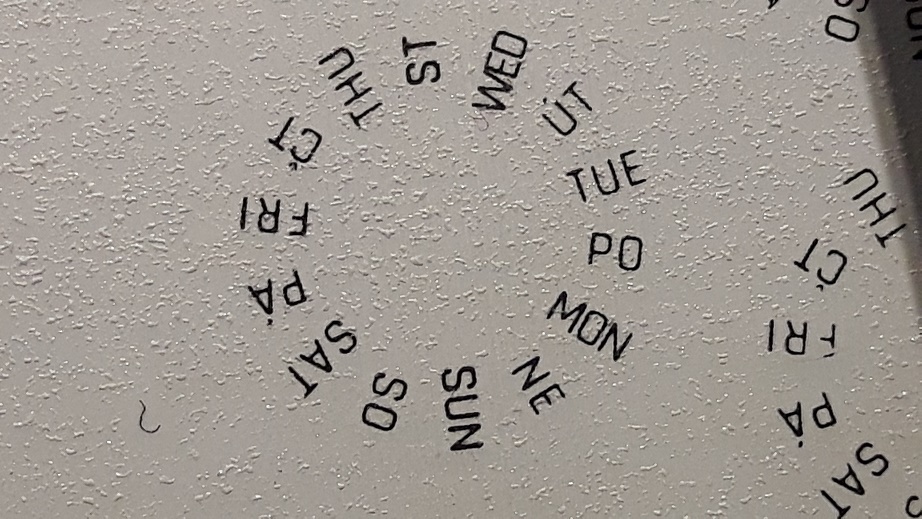 MON
PO
TUE
ÚT
WED
ST
THU
ČT
FRI
PÁ
SAT
SO
SUN
NE
SO
SUN
THU
ČT
FRI
PÁ
SAT